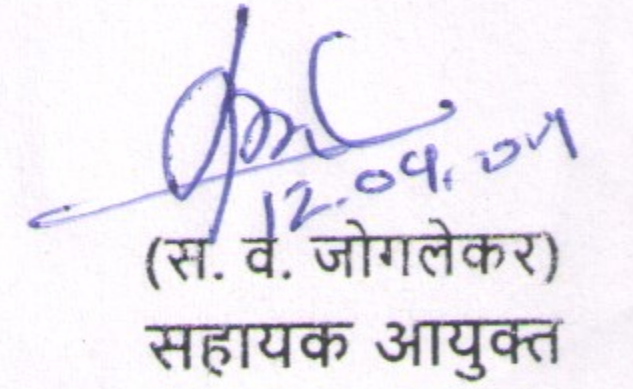 12.09.07
(स. व. जोगलेकर)
सहायक आयुक्त